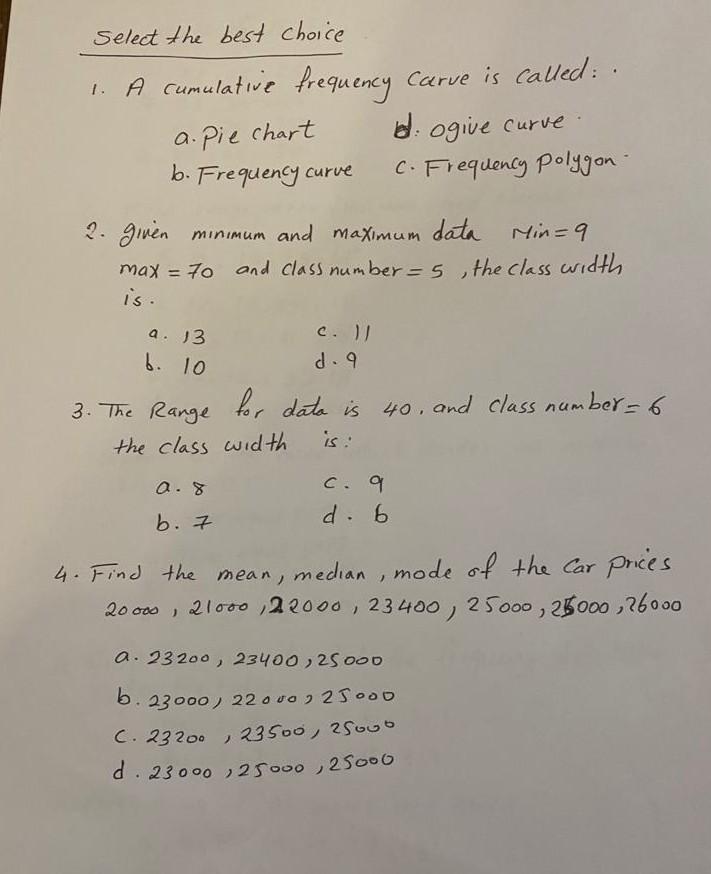 Select the best choice
1. A cumulative frequency Carve is called: .
a. Pie chart d. ogive curve .
b. Frequency curve c. Frequency polygon .
2. given minimum and maximum data Min = 9
max = 70 and class number = 5 , the class width
is .
a. 13 c. 11
b. 10 d. 9
3. The Range for data is 40 , and class number = 6
the class width is :
a. 8 c. 9
b. 7 d. 6
4. Find the mean , median , mode of the Car prices
20000 , 21000 , 22000 , 23400 , 25000 , 25000 , 26000
a. 23200 , 23400 , 25000
b. 23000 , 22000 , 25000
c. 23200 , 23500 , 25000
d. 23000 , 25000 , 25000